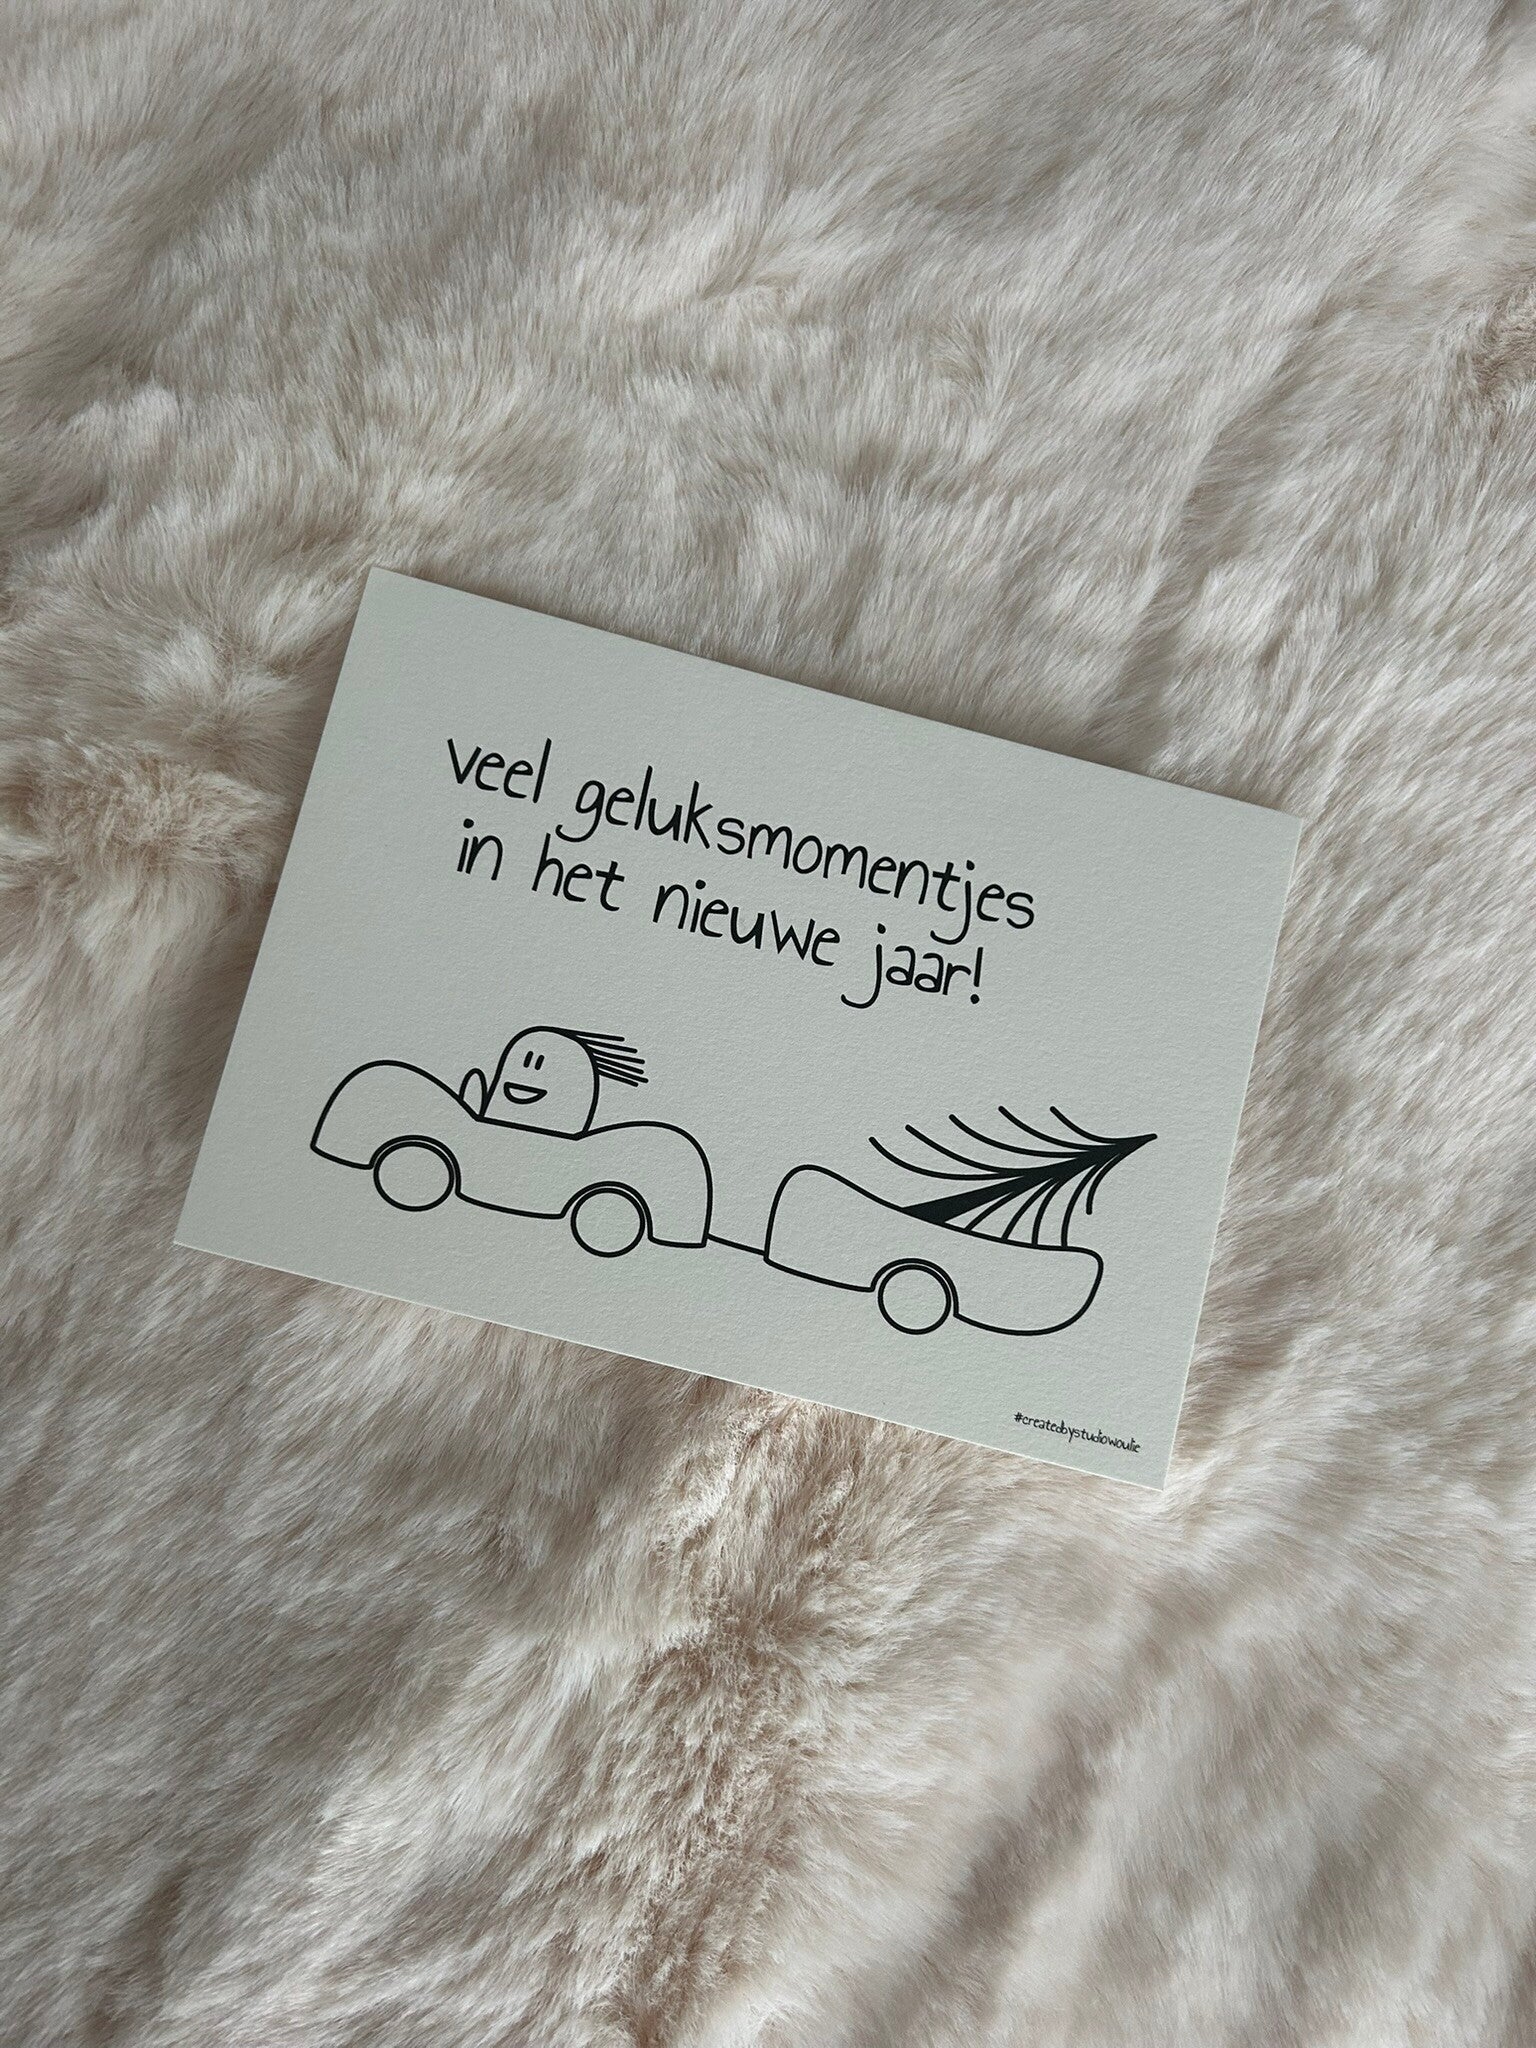 veel geluksmomentjes
in het nieuwe jaar!
#createdbystudiowoulie